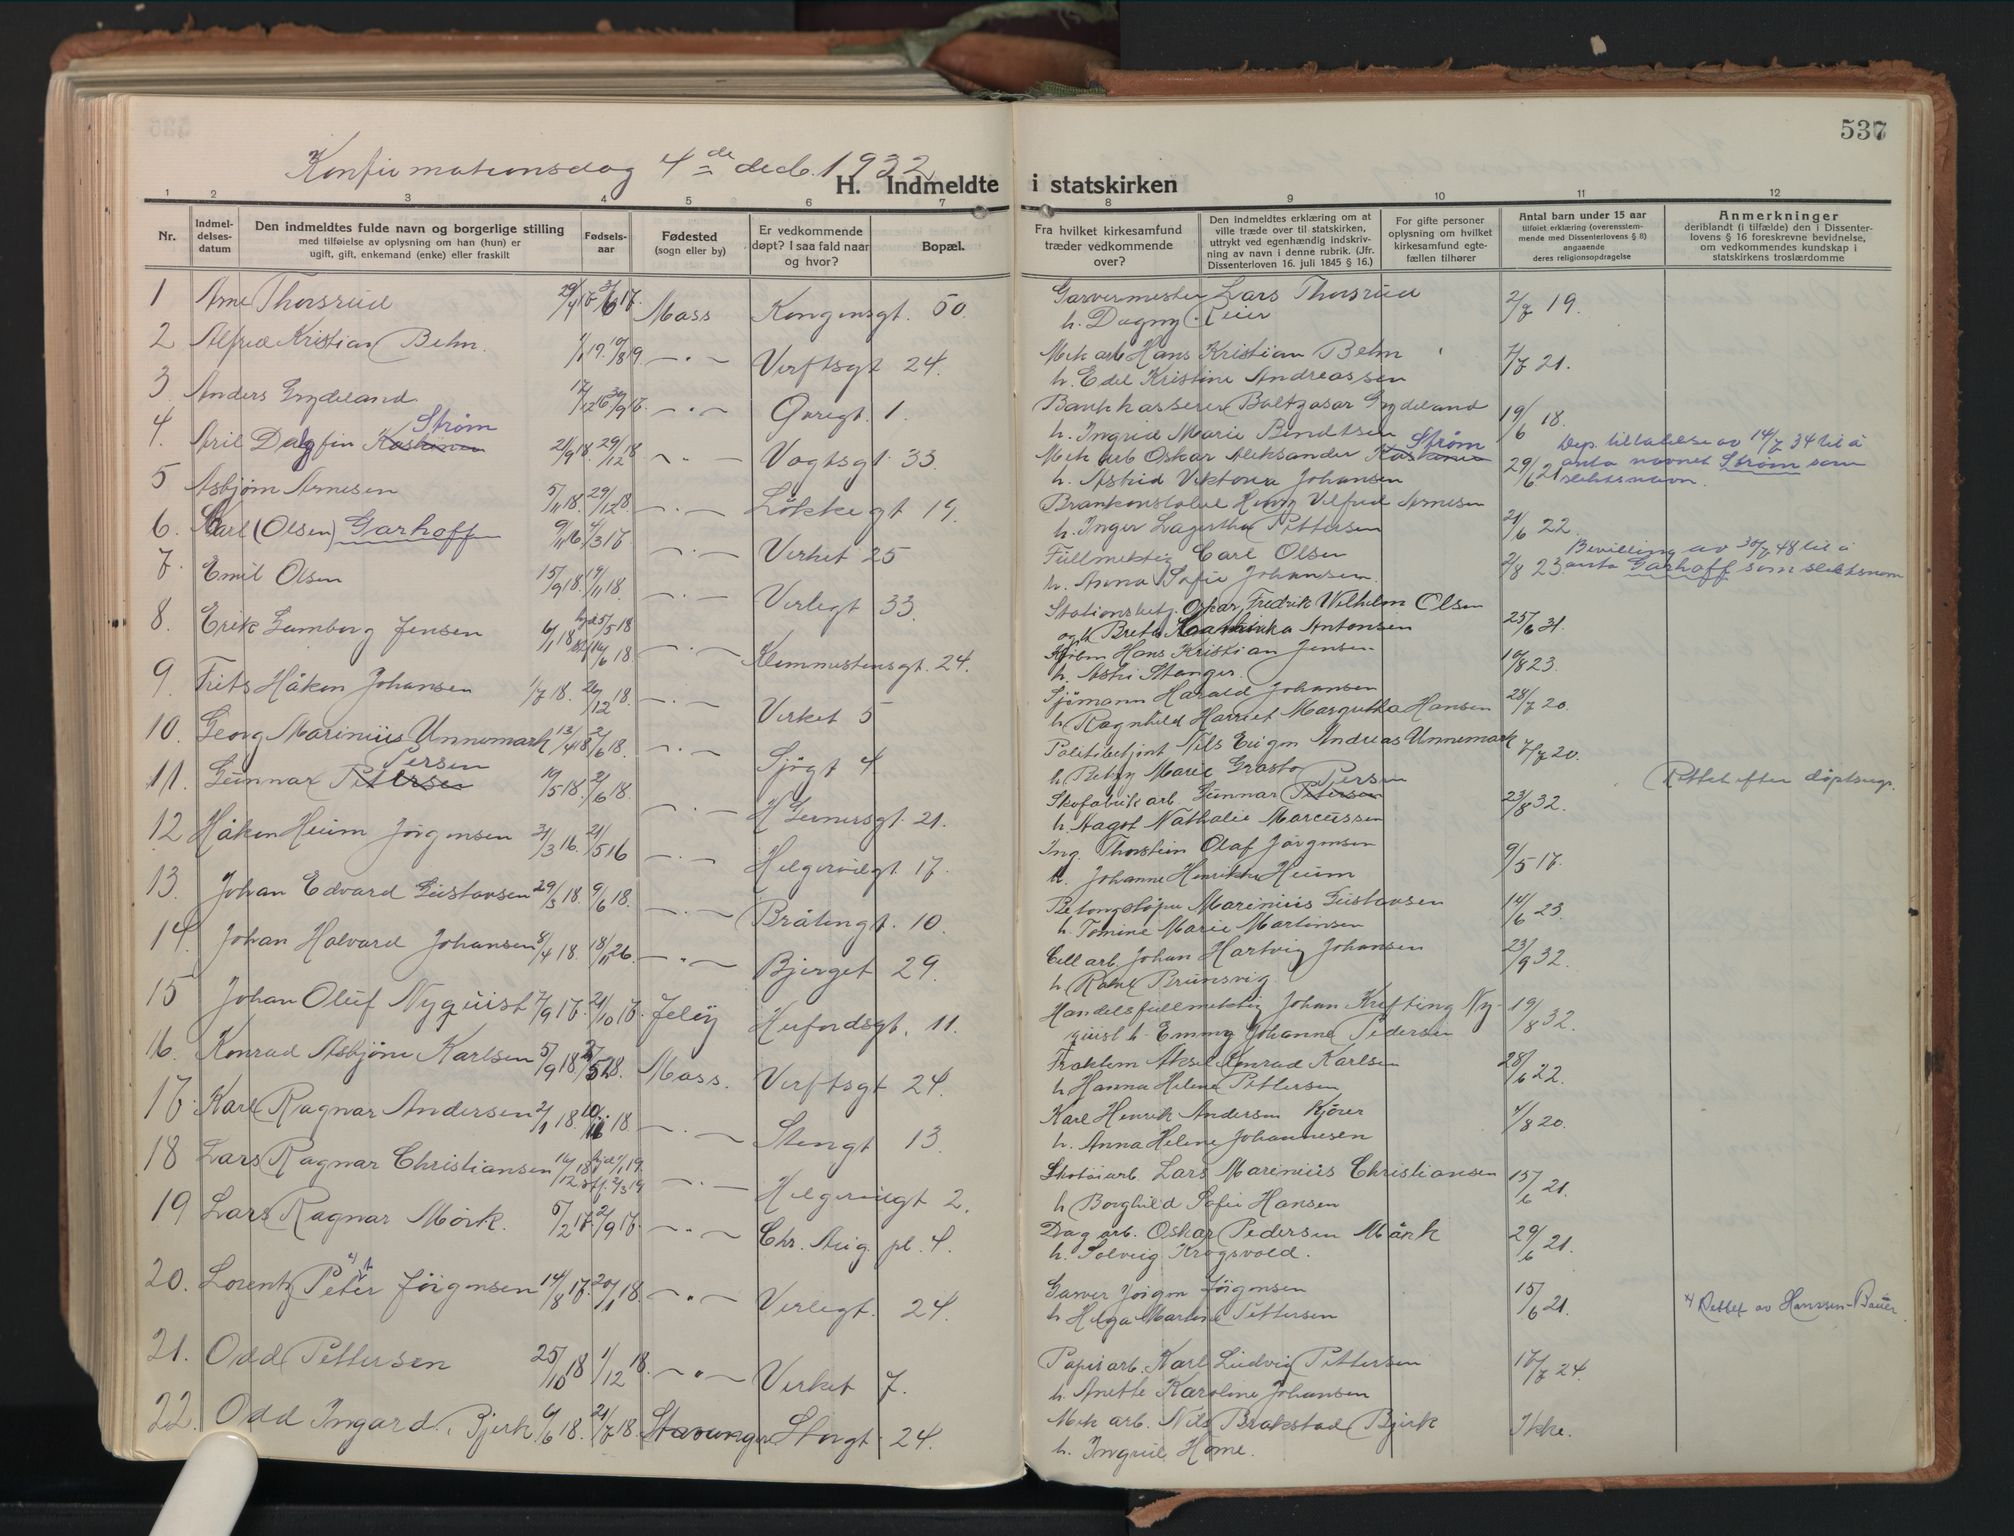 537
Konfirmationsdag 4de decb. 1932
H. Indmeldte i statskirken
1 2 3 4 5 6 7 8 9 10 11 12
Nr.
Indmel-
delses-
datum
Den indmeldtes fulde navn og borgerlige stilling
med tilføielse av oplysning om han (hun) er
ugift, gift, enkemand (enke) eller fraskilt
Fødsels-
aar
Fødested
(sogn eller by)
Er vedkommende
døpt? I saa fald naar
og hvor?
Bopæl.
Fra hvilket kirkesamfund
træder vedkommende
over?
Den indmeldtes erklæring om at
ville træde over til statskirken,
uttrykt ved egenhændig indskriv-
ning av navn i denne rubrik. (Jfr.
Dissenterloven 16. juli 1845 § 16.)
For gifte personer
oplysning om hvilket
kirkesamfund egte-
fællen tilhører
Antal barn under 15 aar
tilføiet erklæring (overensstem-
mende med Dissenterlovens § 8)
angaaende
deres religionsopdragelse
Anmerkninger
deriblandt (i tilfælde) den i Dissenter-
lovens § 16 foreskrevne bevidnelse,
om vedkommendes kundskap i
statskirkens troslærdomme
1 Arne Thorsrud 29/4 17 3/6 17. Moss Kongensgt. 50. Garvermester Lars Thorsrud 2/7 19.
h. Dagny Peier
2 Alfred Kristian Behn. 1/1 19. 10/8 19 —"— Verftsgt 24. Mek arb Hans Kristian Behn 7/7 21.
h. Edel Kristine Andreassen
3 Anders Grydeland 17/12 16 30/9 17. —"— Øvregt 1. Bankkasserer Baltzasar Grydeland 19/6 18.
h. Ingrid Marie Bendtsen
4. Aril Dagfin Koskinen Strøm 21/9 18. 29/12 18 —"— Vogtsgt. 33. Mek arb Oskar Aleksander Koskinen Strøm 29/6 21 Dep. tillatelse av 14/7 34 til å
h. Astrid Viktoria Johansen anta navnet Strøm som
slektsnavn.
5 Asbjørn Arnesen 5/11 18. 29/12 18. —"— Løkkegt 19. Brankonstabel Henry Vilfred Arnesen 21/6 22.
h. Inger Lagertha Pettersen
6. Karl (Olsen) Garhoff 9/11 16 4/3 17 —"— Verket 25 Fullmektig Carl Olsen 2/8 23. Bevilling av 30/7 48 til å
h. Anna Sofie Johansen. anta Garhoff som slektsnavn
7. Emil Olsen 15/9 18. 19/11 18. —"— Verlegt 33. Stationsbetj. Oskar Fredrik Wilhelm Olsen 25/6 31.
og h Breta Antonsen
8. Erik Lamborg Jensen 6/1 18 hjd 25/5 18 16/6 18. —"— Klommestensgt. 24. Kjøbm Hans Kristian Jensen 10/8 23.
h. Astri Stanger.
9. Frits Håkon Johansen 1/7 18. 26/12 18. —"— Verket 5 Sjømann Harald Johansen 28/7 20.
h. Ragnhild Harriet Margretha Hansen
10. Georg Marinius Unnemark 13/4 18 2/6 18. —"— Sjøgt 4. Politibetjent Nils Erigon Andreas Unnemark 7/7 20.
h. Betzy Marie Grasto
11. Gunnar Petersen Persen 10/5 18. 2/6 18. —"— H Gernersgt. 21. Skofabrik arb. Gunnar Petersen Persen 23/8 32. Rettet efter døptsregr.
h. Aagot Nathalie Marcussen
12 Håkon Heum Jørgensen 31/3 16. 21/5 16 —"— Helgerødgt 17. Ing. Thorstein Olaf Jørgensen 9/5 17.
h. Johanne Henrikke Heum
13. Johan Edvard Gustavsen 29/3 18. 9/6 18. —"— Bråtengt. 10. Betongstøper Marinius Gustavsen 14/6 23.
h. Tomine Marie Martinsen
14. Johan Halvard Johansen 8/4 18. 18/11 26. —"— Bjerget 29. Cell arb. Johan Hartvig Johansen 23/9 32.
h Brunsvig.
15 Johan Oluf Nyquist 7/9 17. 21/10 17. Jeløy Hufordsgt. 11. Handelsfullmektig Johan Krefting Ny- 19/8 32.
quist h. Emma Johanne Pedersen
16. Konrad Asbjørn Karlsen 5/9 18 18. Moss. Verftsgt 24. Fraktem Aksel Konrad Karlsen 28/6 22.
h Hanna Helene Pettersen
17. Karl Ragnar Andersen 2/1 18. 10/ 18 —"— Stengt 13. Karl Henrik Andersen Kjører 4/8 20.
h. Anna Helene Johannesen
18 Lars Ragnar Christiansen 16/12 18 hjd 1/1 19. stf. 2/3 19 —"— Helgerødgt 2. Skotøiarb. Lars Marinius Christiansen 15/6 21.
h Borghild Sofie Hansen
19 Lars Ragnar Mørk. 5/2 17. 2/9 17. —"— Chr. Aug. pl. 4. Dag arb. Oskar Pedersen Mørk 29/6 21.
h. Solveig Krogsvold.
20. Lorentz Peter Jørgensen 14/8 17. 20/1 18. —"— Verlegt. 24. Garver Jørgen Jørgensen 15/6 21. x) Rettet av Hanssen-Bauer
h Helga Martine Pettersen
21. Odd Pettersen 25/10 18 1/12 18. —"— Verket 7. Papirarb. Karl Ludvig Pettersen 17/7 24.
h. Anette Karoline Johansen
22. Odd Ingard Bjerk 6/6 18. 21/7 18. Stavanger Storgt 24. Mek arb. Nils Brakstad Bjerk Ikke.
h. Ingrid Home.